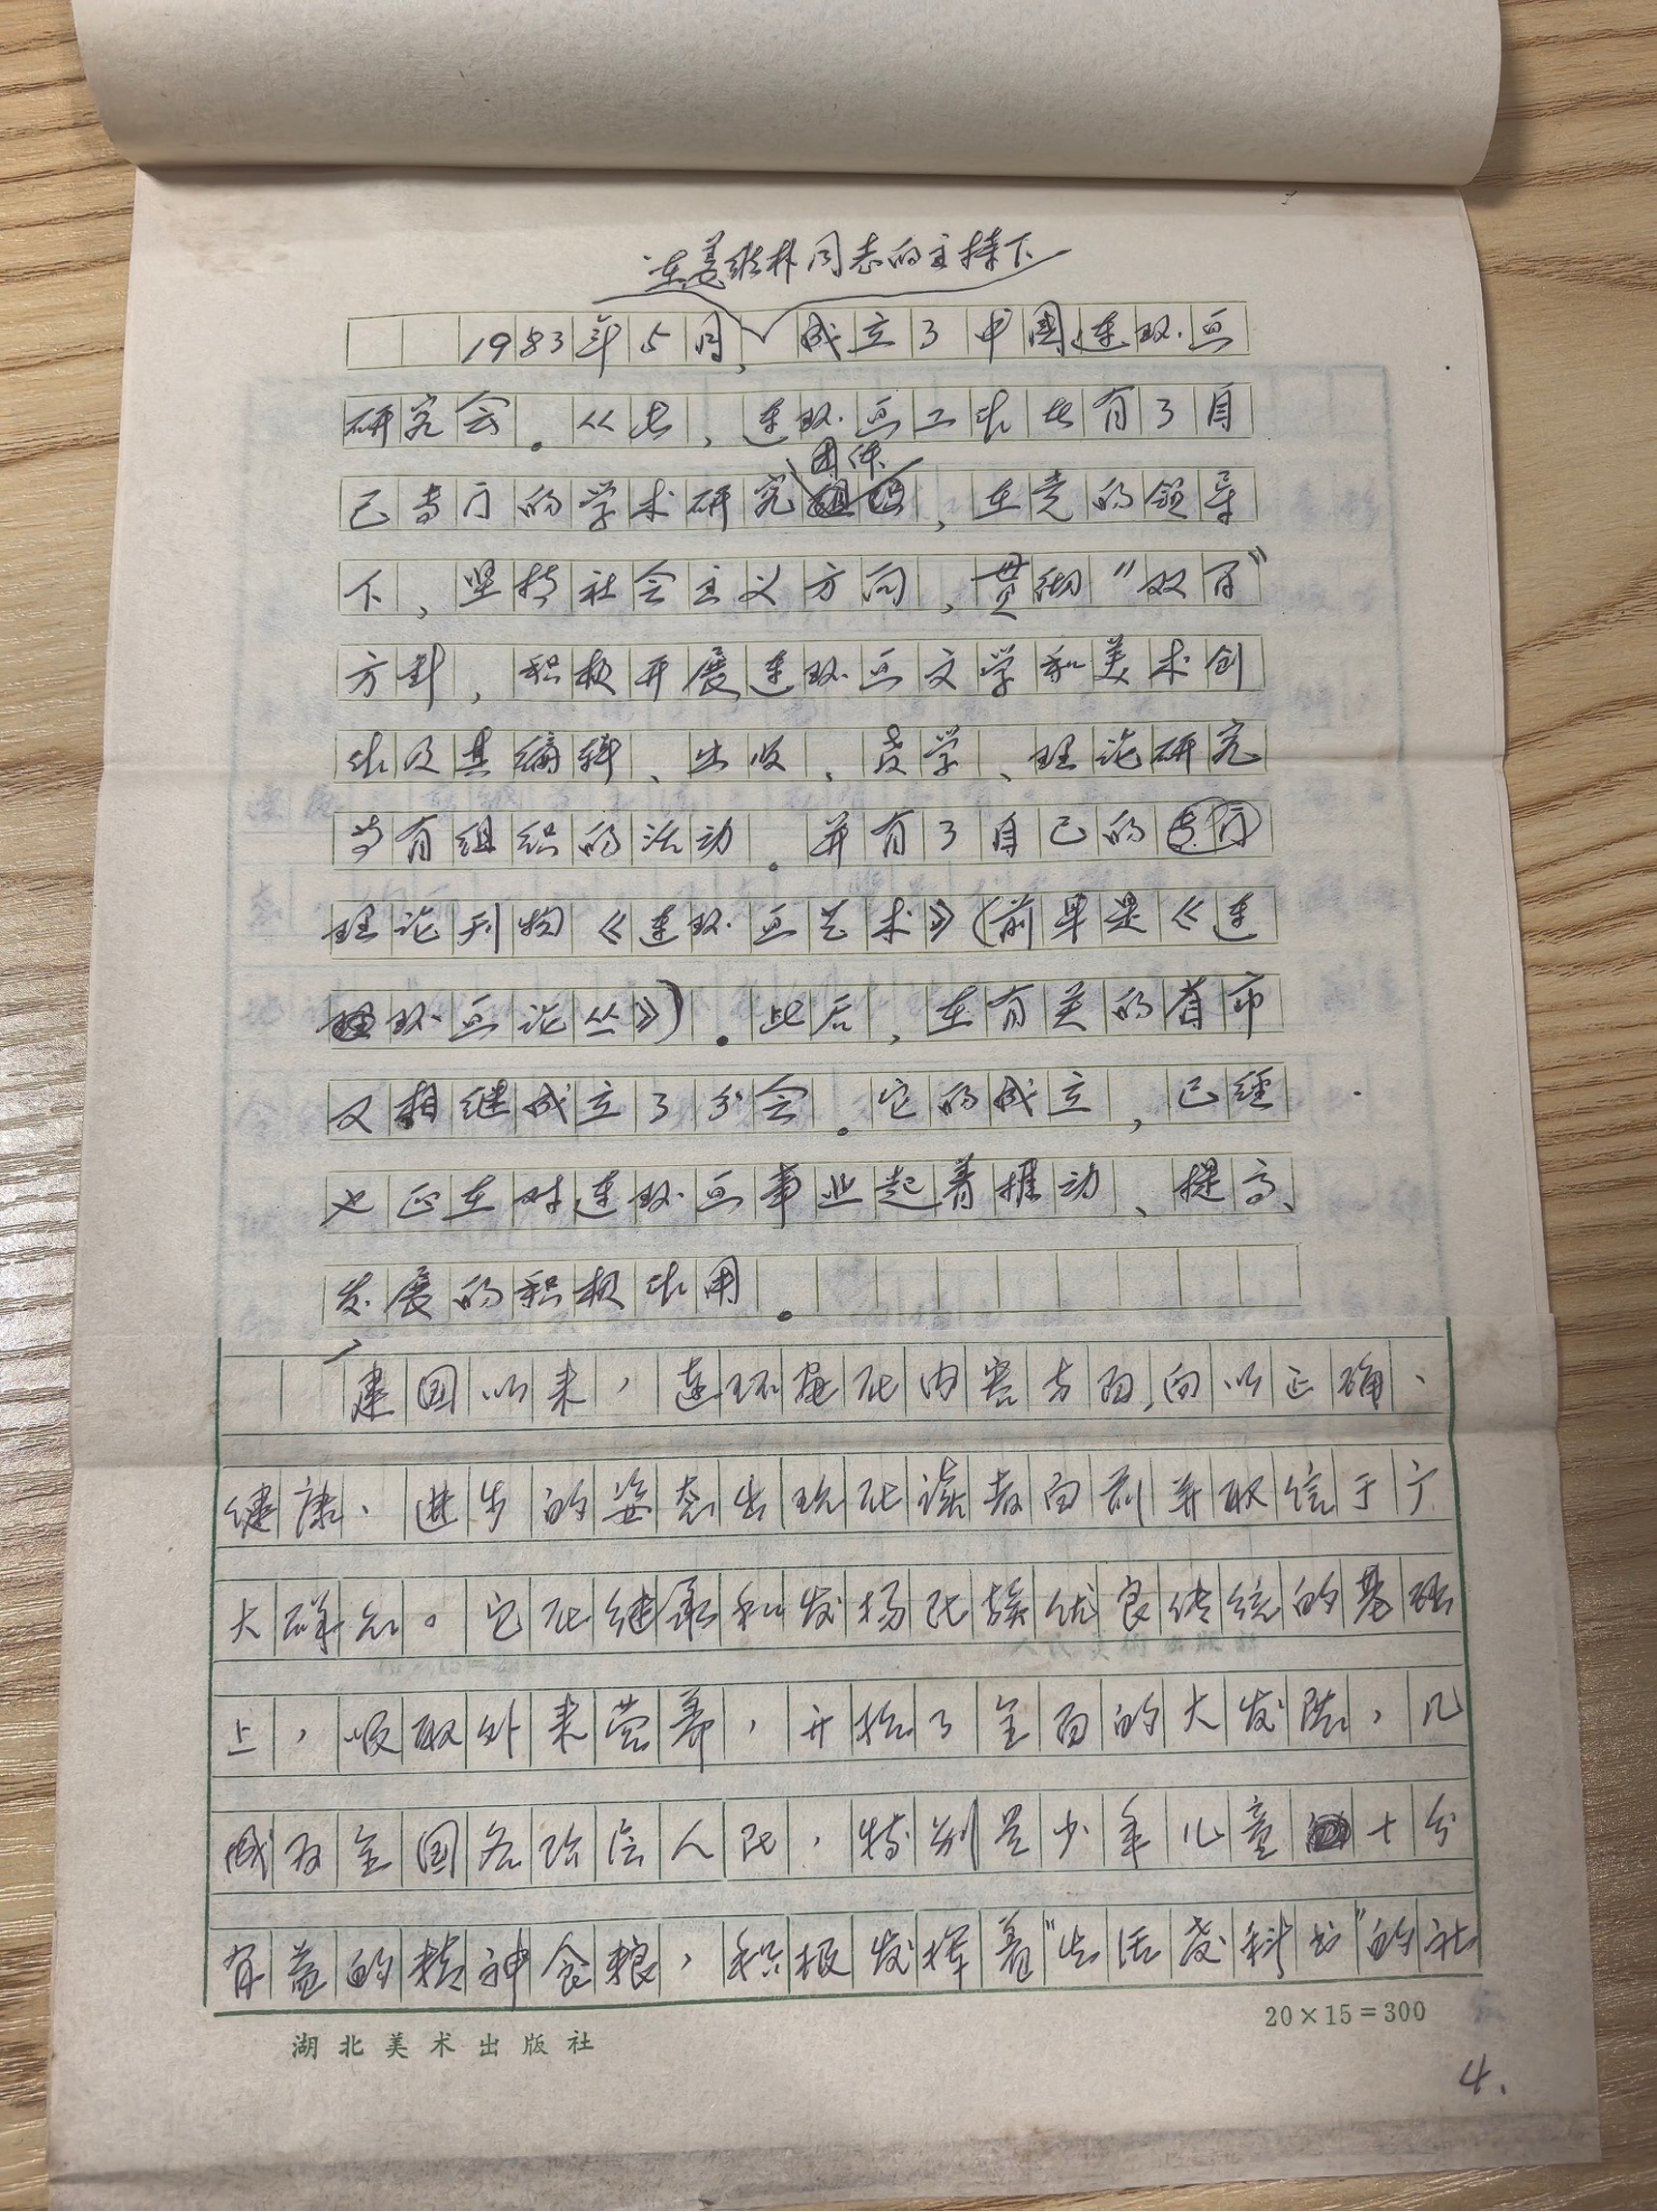 在姜维朴同志的主持下
1983年5月，成立了中国连环画
研究会。从此，连环画工作者有了自
团体
己专门的学术研究，在党的领导
下，坚持社会主义方向，贯彻“双百”
方针，积极开展连环画文学和美术创
作及其编辑、出版、教学、理论研究
等有组织的活动。并有了自己的专门
理论刊物《连环画艺术》（前单是《连
环画论丛》）。此后，在有关的省市
又相继成立了分会。它的成立，已经
也正在对连环画事业起着推动、提高、
发展的积极作用。
建国以来，连环画在内容方面，向以正确、
健康、进步的姿态出现在读者面前并取信于广
大群众。它在继承和发扬民族优良传统的基础
上，吸取外来营养，开始了全面的大发展，几
成为全国各阶层人民，特别是少年儿童十分
有益的精神食粮，积极发挥着“生活教科书”的社
湖北美术出版社
20×15=300
4.